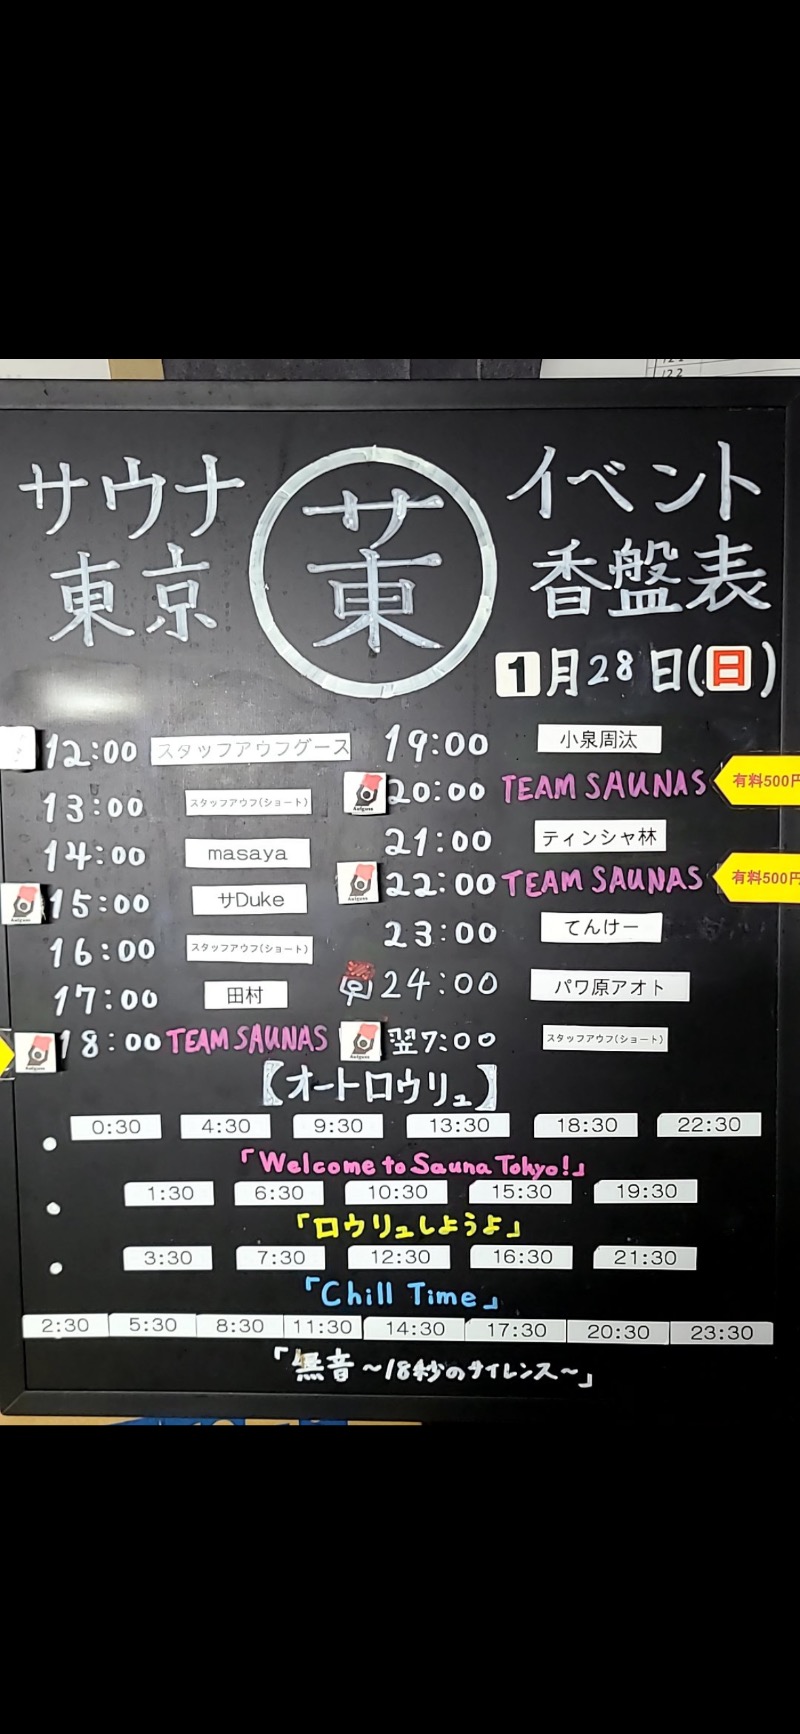 サウナ
東京
サ東
イベント
香盤表
1月28日(日)
12:00 スタッフアウフグース
13:00 スタッフアウフ(ショート)
14:00 masaya
15:00 サDuke
16:00 スタッフアウフ(ショート)
17:00 田村
18:00 TEAM SAUNAS
19:00 小泉周汰
20:00 TEAM SAUNAS 有料500円
21:00 ティンシャ林
22:00 TEAM SAUNAS 有料500円
23:00 てんけー
24:00 パワ原アオト
翌7:00 スタッフアウフ(ショート)
【オートロウリュ】
0:30 4:30 9:30 13:30 18:30 22:30
「Welcome to Sauna Tokyo!」
1:30 6:30 10:30 15:30 19:30
「ロウリュしようよ」
3:30 7:30 12:30 16:30 21:30
「Chill Time」
2:30 5:30 8:30 11:30 14:30 17:30 20:30 23:30
「無音～18秒のサイレンス～」